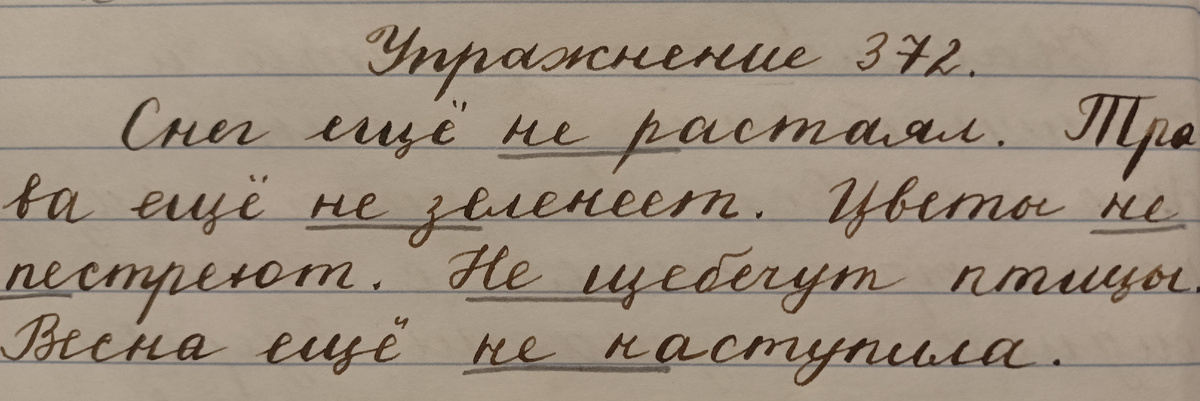 Упражнение 372.
Снег ещё не растаял. Тра
ва ещё не зеленеет. Цветы не
пестреют. Не щебечут птицы.
Весна ещё не наступила.